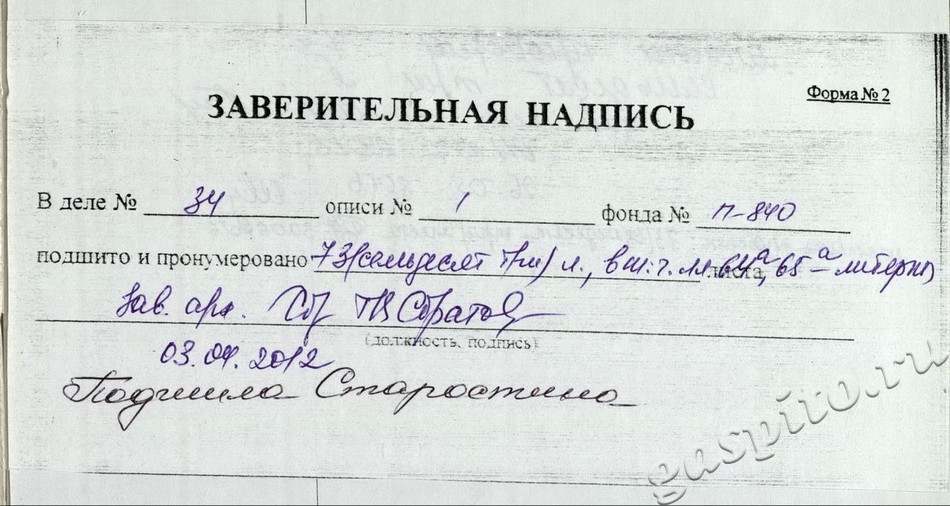 Форма № 2
ЗАВЕРИТЕЛЬНАЯ НАДПИСЬ
В деле № 34 описи № 1 фонда № П-840
подшито и пронумеровано 73 (семьдесят три) л., в т.ч. лл. 64а, 65а - литерн, листа,
Зав. арх.
(должность, подпись)
03.04.2012
Подшила Старостина
gaspito.ru